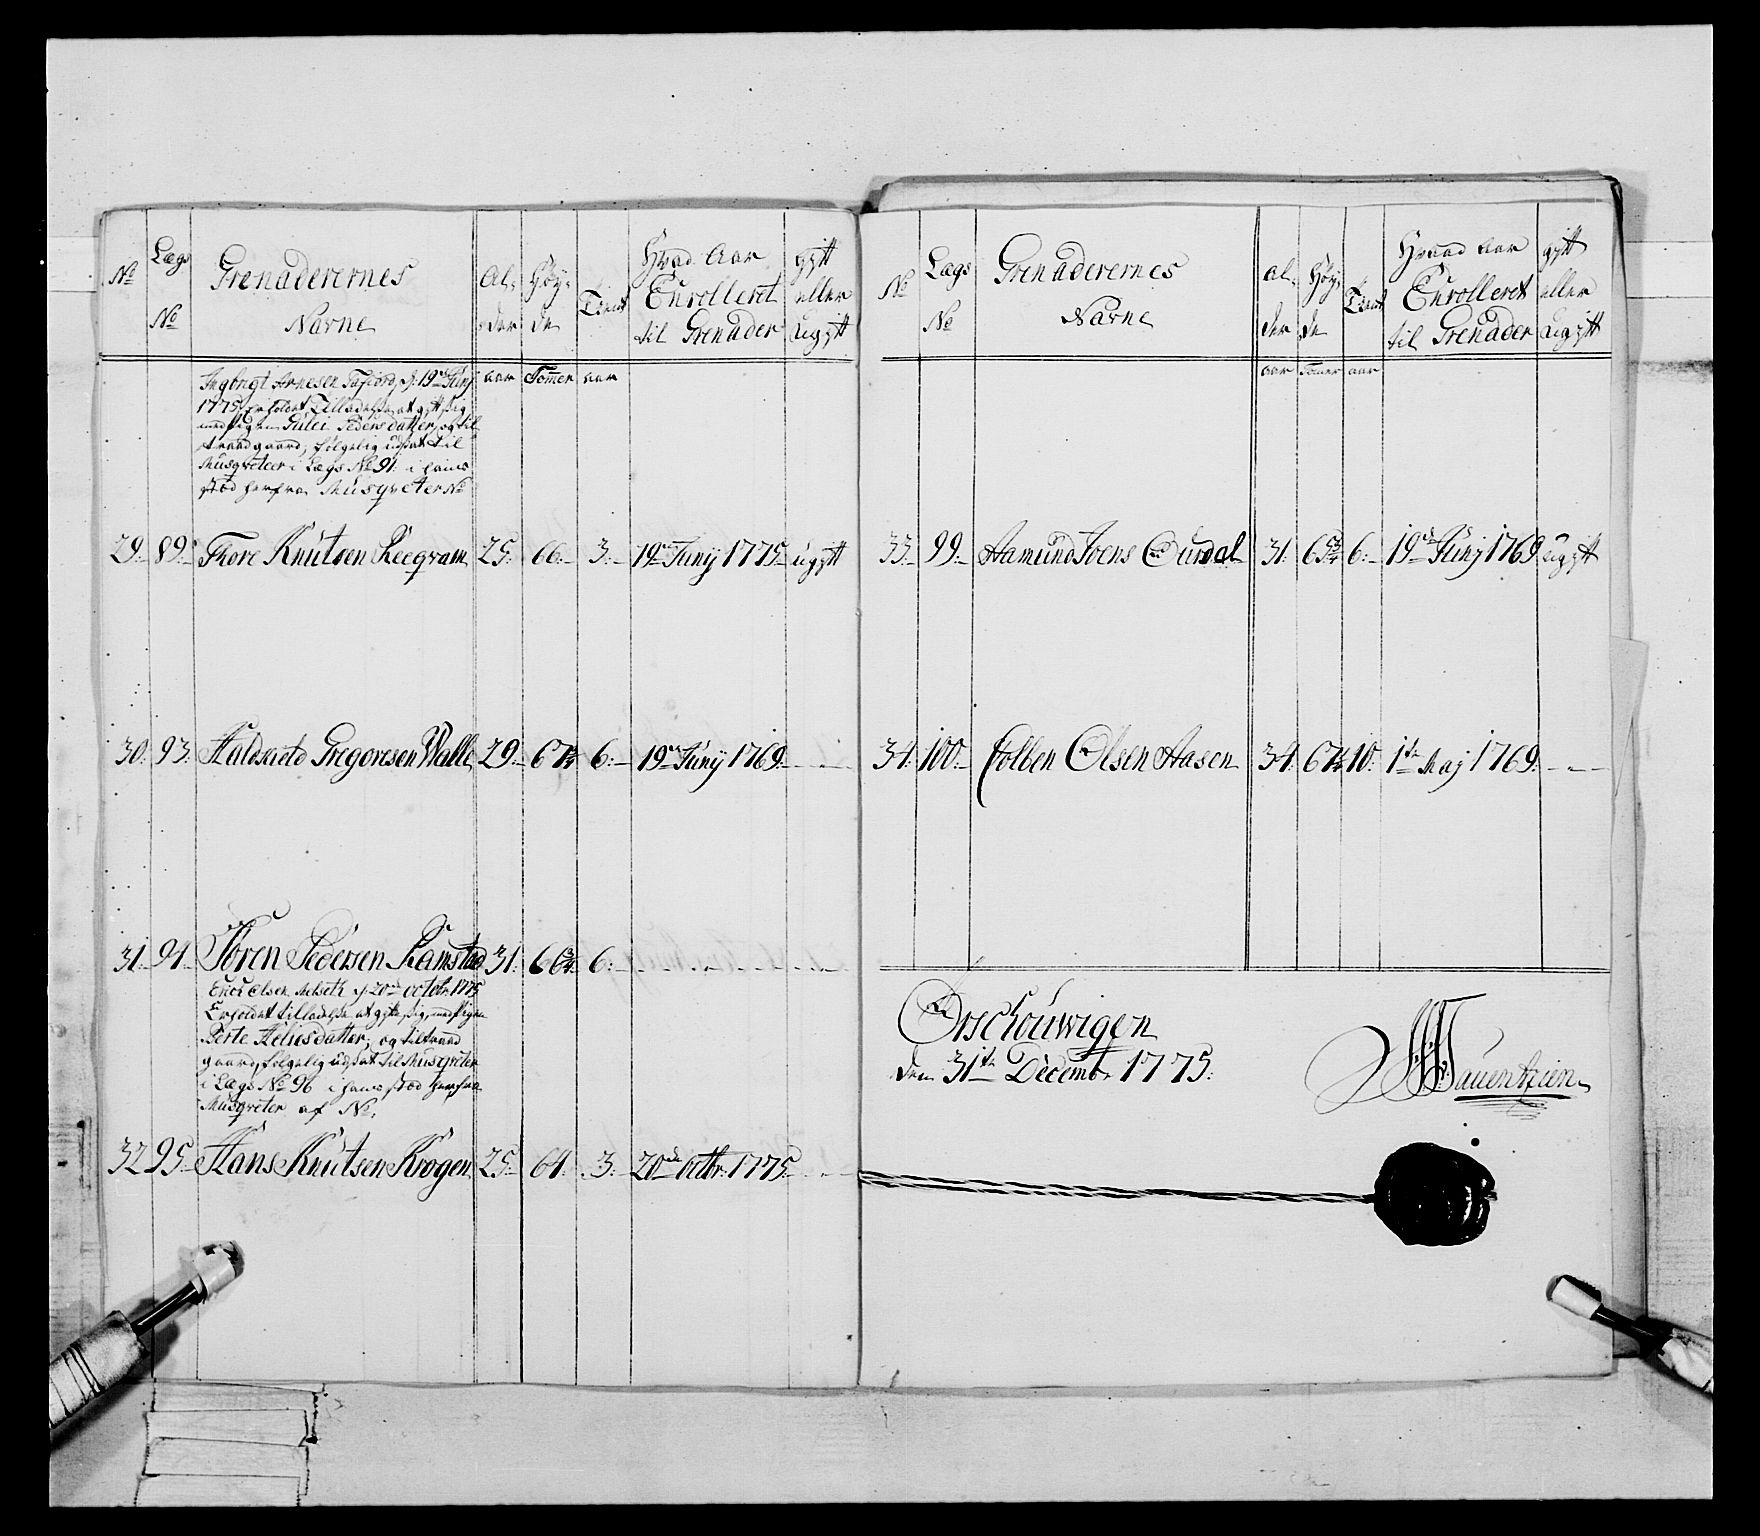 No
Lægs
No
Grenaderernes
Navne
Al-
der
Höy-
de
Tient
Hvad Aar
Enrolleret
til Grenader
gift
eller
ugift
aar Tommer aar
Ingbrigt Arnesen Tafiord, d: 19de Junj
1775 Erholdet Tilladelse at gifte sig
med Pigen Gulei Pedersdatter, og til
traad gaard, følgelig udsat til
Musqveteer i Lægs No 91. i hans
stæd herfra Musqveter No
29. 89. Thore Knutsen 25. 66. 3. 19de Junij 1775 ugift
30. 93. Haldvard Gregoresen Walle 29. 67 1/4 6. 19de Junij 1769.
31. 94. Sören Pedersen Ramstad 31. 66 3/4 6.
Erich Olsen Melseth d: 20de octobr: 1775
Erholdet tilladelse at gifte sig med Pigen
Berte datter, og tiltraad
gaard, følgelig udsat til Musqveter
i Lægs No 96 i hans stæd herfra
Musqveter af No.
32 95. Hans Knutsen Krogen 25. 64. 3. 20de Octbr. 1775.
No
Lægs
No
Grenaderernes
Navne
Al-
der
Höy-
de
Tient
Hvad Aar
Enrolleret
til Grenader
gift
eller
ugift
aar Tommer aar
33. 99. Aamund Ivens Ourdal 31. 65 3/4 6. 19de Junj 1769. ugift
34. 100. Colben Olsen Aasen 34. 67 1/4 10. 1ste Maj 1769.
Orschouwigen
den 31te Decembr 1775.
Tauentzien